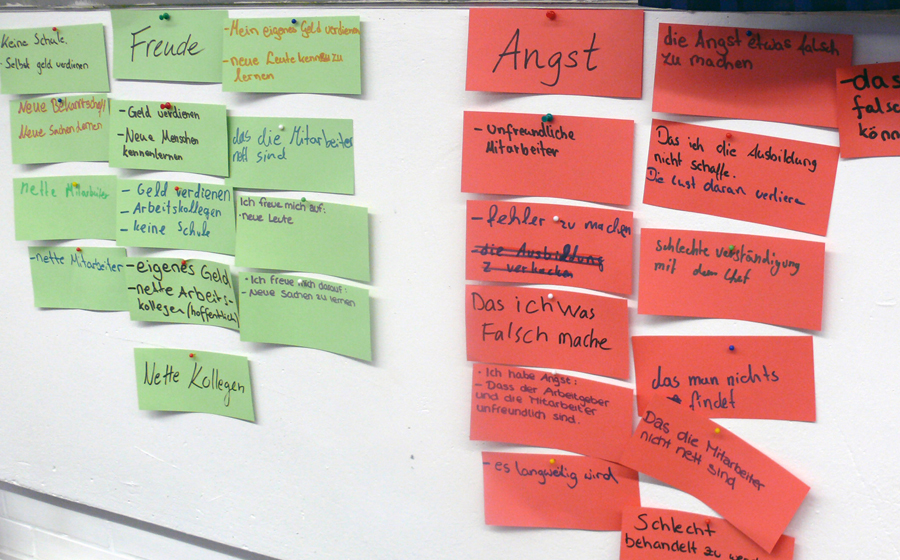 Keine Schule.
- Selbst geld verdienen
Freude
- Mein eigenes Geld verdienen
- neue Leute kennen zu
lernen
Neue Bekanntschaft
Neue Sachen lernen
- Geld verdienen
- Neue Menschen
kennenlernen
das die Mitarbeiter
nett sind
nette Mitarbeiter
- Geld verdienen
- Arbeitskollegen
- keine Schule
Ich freue mich auf:
- neue Leute
- nette Mitarbeiter
- eigenes Geld
- nette Arbeits-
kollegen (hoffentlich)
- Ich freue mich darauf:
- Neue Sachen zu lernen
Nette Kollegen
Angst
- Unfreundliche
Mitarbeiter
- fehler zu machen
- die Ausbildung
z verhacken
Das ich Was
Falsch mache
- Ich habe Angst:
- Dass der Arbeitgeber
und die Mitarbeiter
unfreundlich sind.
- es langweilig wird
die Angst etwas falsch
zu machen
Das ich die Ausbildung
nicht schaffe.
Die Lust daran verliere
schlechte verständigung
mit dem Chef
das man nichts
findet
Das die Mitarbeiter
nicht nett sind
Schlecht
behandelt zu
- das
falsc
könn